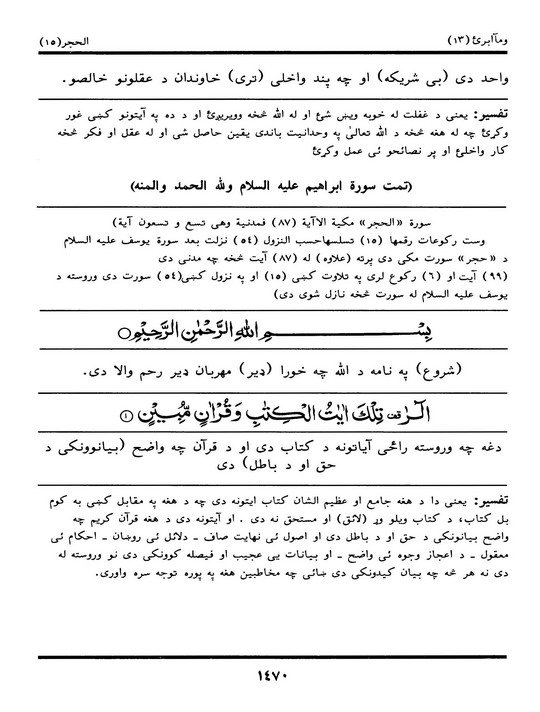 ومآابرئ(١٣)
الحجر(١٥)
واحد دی (بی شریکه) او چه پند واخلی (تری) خاوندان د عقلونو خالصو.
تفسیر: یعنی د غفلت له خوبه ویښ شئ او له الله څخه وویریږئ او د ده په آیتونو کښی غور
وکړئ چه له هغه څخه د الله تعالیٰ په وحدانیت باندی یقین حاصل شی او له عقل او فکر څخه
کار واخلئ او پر نصائحو ئی عمل وکړئ
(تمت سورة ابراهیم علیه السلام ولله الحمد والمنه)
سورة «الحجر» مکیة الاآیة (٨٧) فمدنیة وهی تسع و تسعون آیة)
وست رکوعات رقمها (١٥) تسلسهاحسب النزول (٥٤) نزلت بعد سورة یوسف علیه السلام
د «حجر» سورت مکی دی پرته (علاوه) له (٨٧) آیت څخه چه مدنی دی
(٩٩) آیت او (٦) رکوع لری په تلاوت کښی (١٥) او په نزول کښی(٥٤) سورت دی وروسته د
یوسف علیه السلام له سورت څخه نازل شوی دی)
بِسْــــمِ اللهِ الرَّحْمٰنِ الرَّحِيْمِ○
(شروع) په نامه د الله چه خورا (ډیر) مهربان ډیر رحم والا دی.
الٓرٰ تِلْكَ اٰيٰتُ الْكِتٰبِ وَقُرْاٰنٍ مُّبِيْنٍ ①
دغه چه وروسته راځی آیاتونه د کتاب دی او د قرآن چه واضح (بیانوونکی د
حق او د باطل) دی
تفسیر: یعنی دا د هغه جامع او عظیم الشان کتاب ایتونه دی چه د هغه په مقابل کښی به کوم
بل کتاب، د کتاب ویلو وړ (لائق) او مستحق نه دی . او آیتونه دی د هغه قرآن کریم چه
واضح بیانونکی د حق او د باطل دی او اصول ئی نهایت صاف ـ دلائل ئی روښان ـ احکام ئی
معقول ـ د اعجاز وجوه ئی واضح ـ او بیانات یی عجیب او فیصله کوونکی دی نو وروسته له
دی نه هر څه چه بیان کیدونکی دی ښائی چه مخاطبین هغه په پوره توجه سره واوری.
١٤٧٠